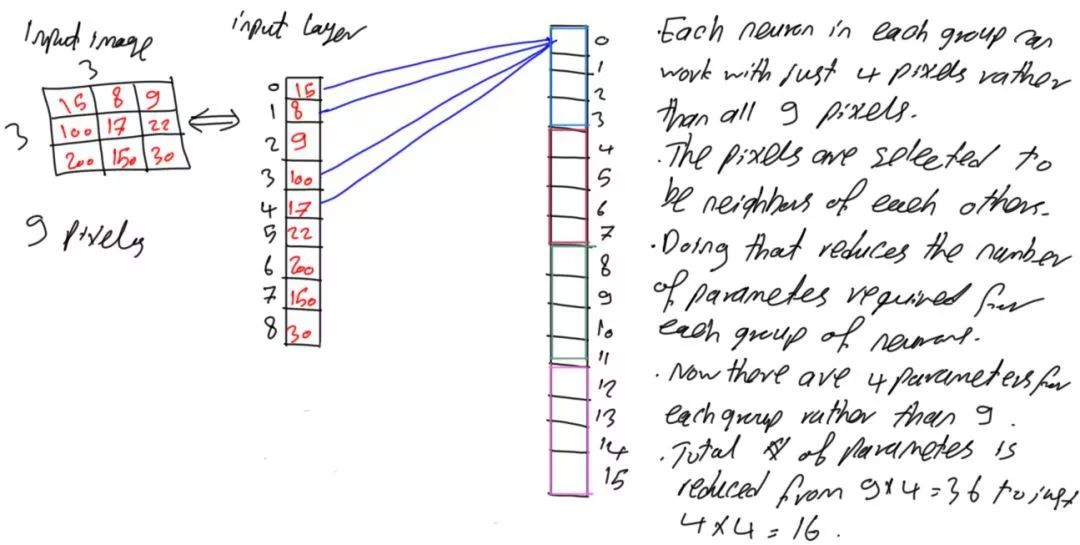 Input image
3
3
15 8 9
100 17 22
200 150 30
9 pixels
input Layer
0 15
1 8
2 9
3 100
4 17
5 22
6 200
7 150
8 30
0
1
2
3
4
5
6
7
8
9
10
11
12
13
14
15
.Each neuron in each group can
work with just 4 pixels rather
than all 9 pixels.
.The pixels are selected to
be neighbors of each others.
.Doing that reduces the number
of parametes required for
each group of neurons.
.Now there are 4 parameters for
each group rather than 9.
.Total # of parametes is
reduced from 9*4=36 to just
4*4=16.